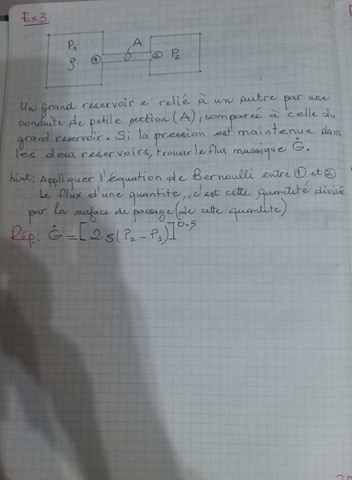 Ex3
A
P1
ρ
①
②
P2
Un grand reservoir est relié à un autre par une
conduite de petite section (A), comparée à celle du
grand reservoir. Si la pression est maintenue dans
les deux reservoirs, trouver le flux massique Ġ.
hint: Appliquer l'équation de Bernoulli entre ① et ②
Le flux d'une quantité, c'est cette quantité divisé
par la surface de passage (de cette quantité)
Rép: Ġ = [2ρ(P2 - P1)]^0.5